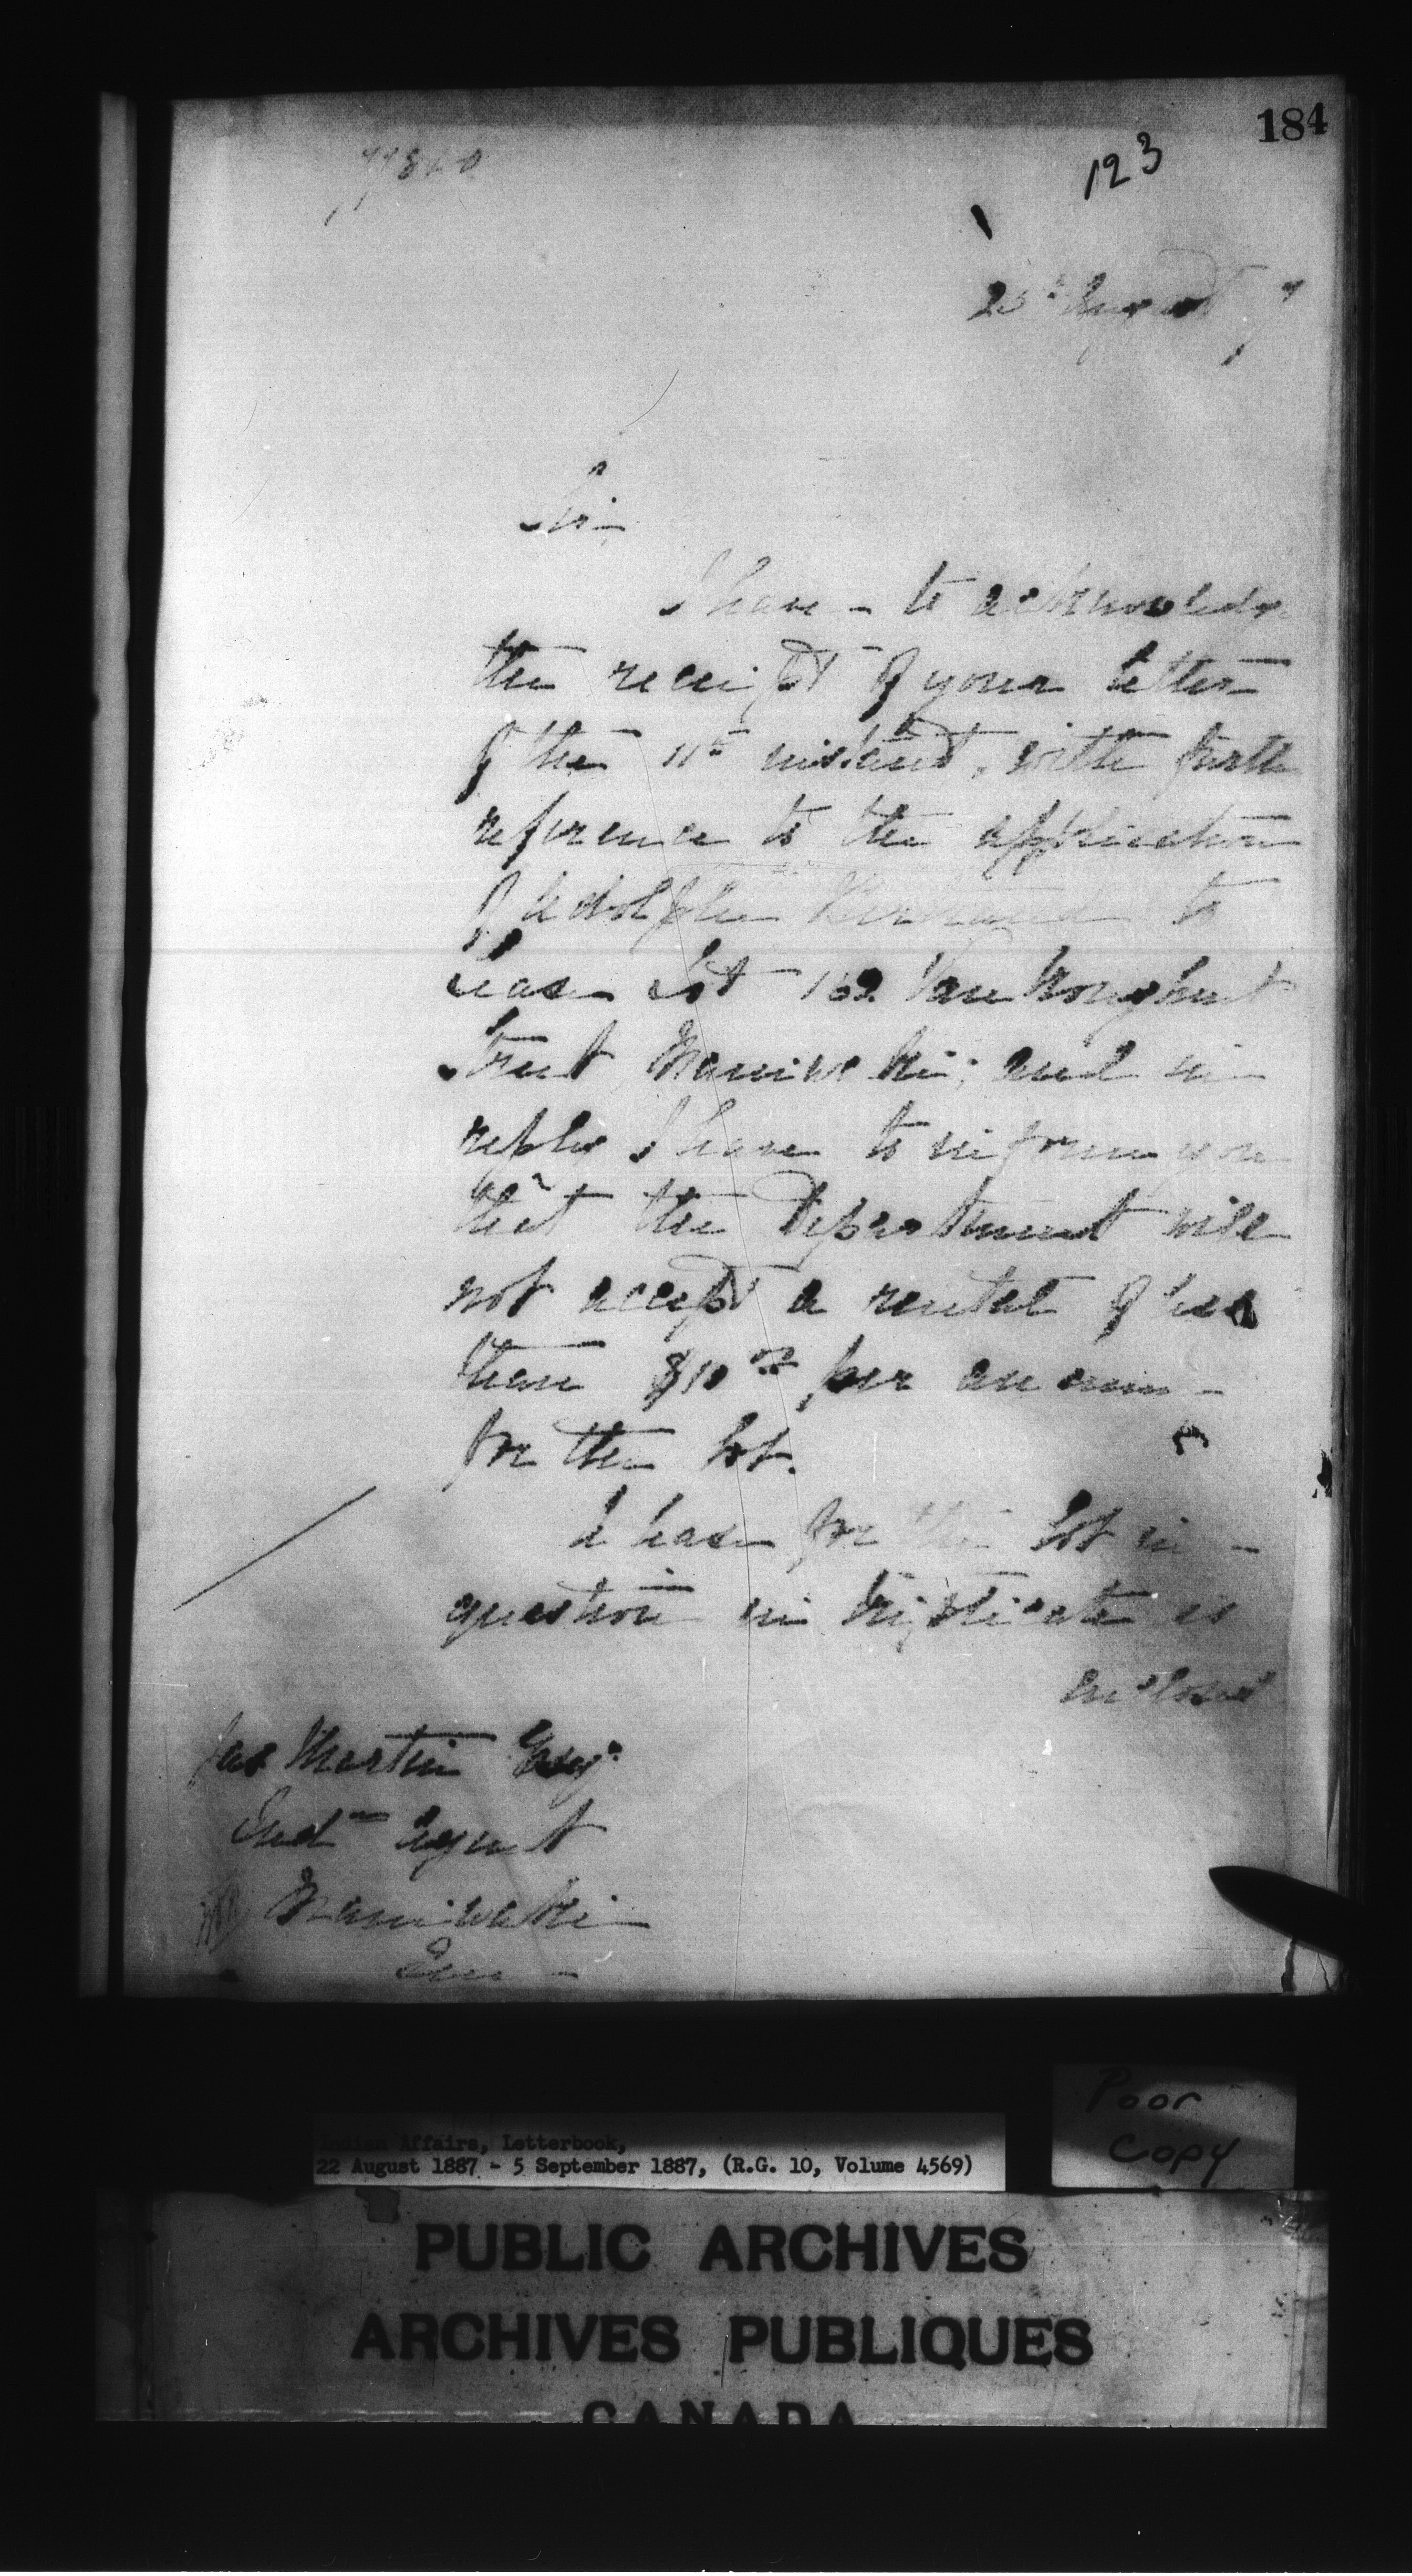 184
123
25th August 7
Sir
I have to acknowledge
the receipt of your letter
of the 11th instant, with further
reference to the application
of Adolphe to
lease lot Van Koughnet
Street Maniwaki; and in
reply I have to inform you
that the Department will
not accept a rental of less
than $10 00 per annum
for the lot.
A lease for the lot in
question in triplicate is
enclosed
Jas Martin Esq.
Indn Agent
Maniwaki
Que
Poor
Copy
Indian Affairs, Letterbook,
22 August 1887 - 5 September 1887, (R.G. 10, Volume 4569)
PUBLIC ARCHIVES
ARCHIVES PUBLIQUES
CANADA